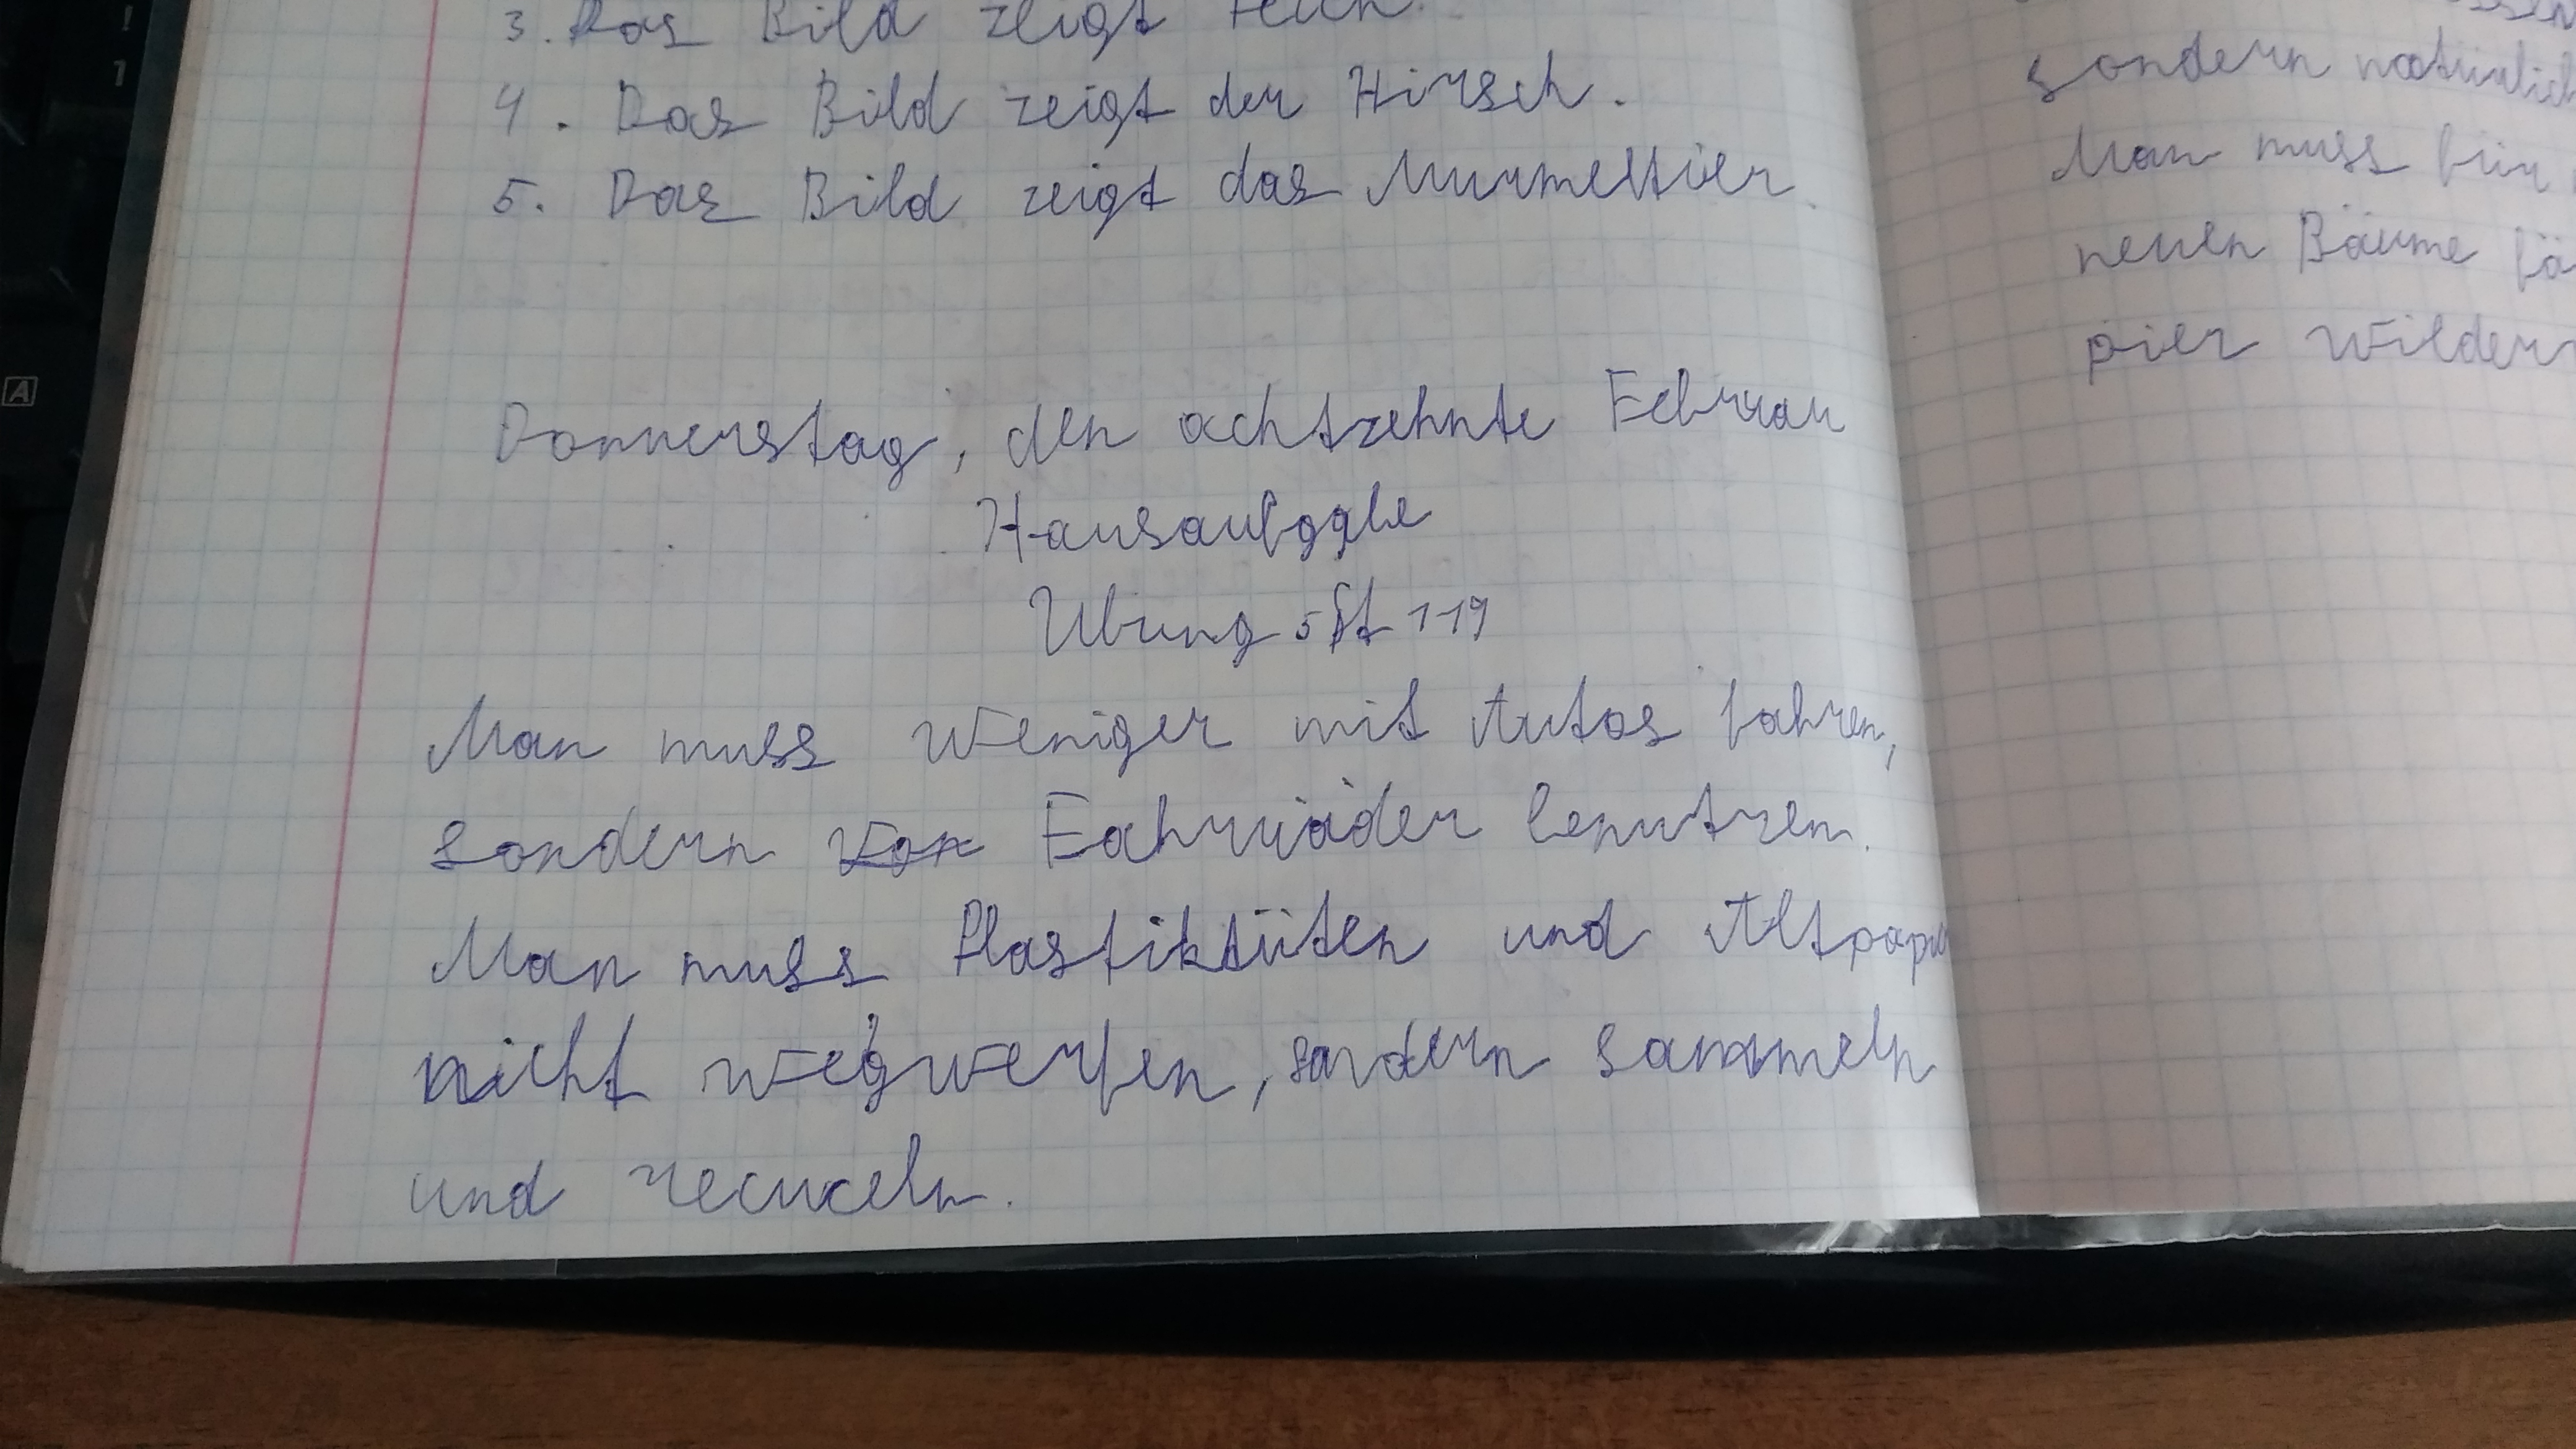 3. Das Bild zeigt Teich.
4. Das Bild zeigt der Hirsch.
5. Das Bild zeigt das Murmeltier.
Donnerstag, den achtzehnte Februar
Hausaufgabe
Ubung 5 St 119
Man muss weniger mit Autos fahren,
sondern Fahrräder benutzen.
Man muss Plastiktüten und Altpapier
nicht wegwerfen, sondern sammeln
und recyceln.
sondern natürlich
Man muss für
neuen Bäume
pier